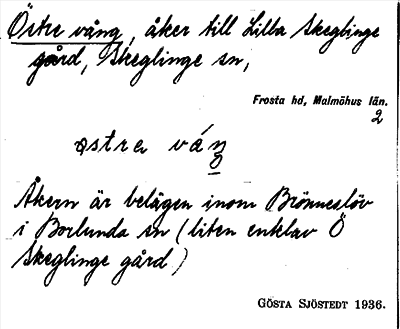 Östre vång, åker till Lilla Skeglinge
gård, Skeglinge sn,
Frosta hd, Malmöhus län.
2
østrə váŋ
Åkern är belägen inom Brönneslöv
i Borlunda sn (liten enklav Ö
Skeglinge gård)
GÖSTA SJÖSTEDT 1936.